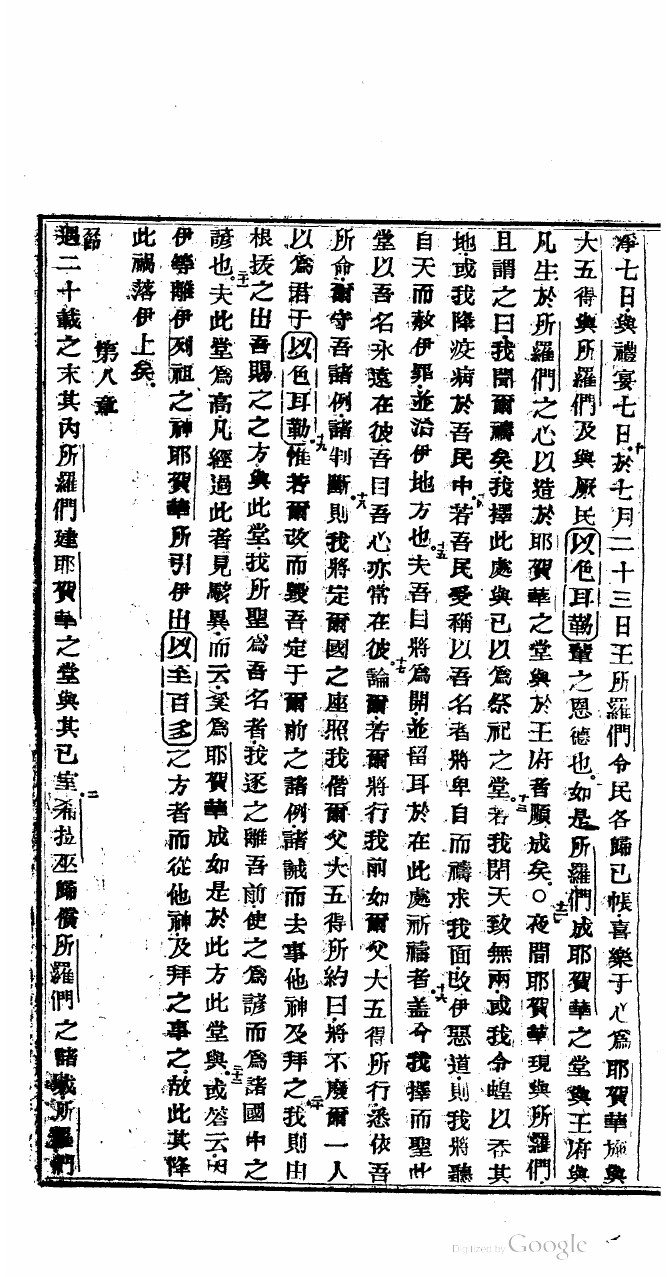 淨七日與禮宴七日於七月二十三日王所羅們令民各歸已帳喜樂于心爲耶賀華施與
大五得與所羅們及與厥民以色耳勒輩之恩德也如是所羅們成耶賀華之堂與王府與
凡生於所羅們之心以造於耶賀華之堂與於王府者順成矣○夜間耶賀華現與所羅們
且謂之曰我聞爾禱矣我擇此處與已以爲祭祀之堂若我閉天致無雨或我令蝗以吞其
地或我降疫病於吾民中若吾民受稱以吾名者將卑自而禱求我面改伊惡道則我將聽
自天而赦伊罪並治伊地方也夫吾目將爲開並留耳於在此處祈禱者盖今我擇而聖此
堂以吾名永遠在彼吾目吾心亦常在彼論爾若爾將行我前如爾父大五得所行悉依吾
所命爾守吾諸例諸判斷則我將定爾國之座照我偕爾父大五得所約曰將不廢爾一人
以爲君于以色耳勒惟若爾改而毀吾定于爾前之諸例諸誡而去事他神及拜之我則由
根拔之出吾賜之之方與此堂我所聖爲吾名者我逐之離吾前使之爲諺而爲諸國中之
諺也夫此堂爲高凡經過此者見駭異而云奚爲耶賀華成如是於此方此堂與或答云因
伊等離伊列祖之神耶賀華所引伊出以至百多之方者而從他神及拜之事之故此其降
此禍落伊上矣
第八章
節
遇二十載之末其內所羅們建耶賀華之堂與其已室希拉巫歸償所羅們之諸城所羅們
Digitized by Google